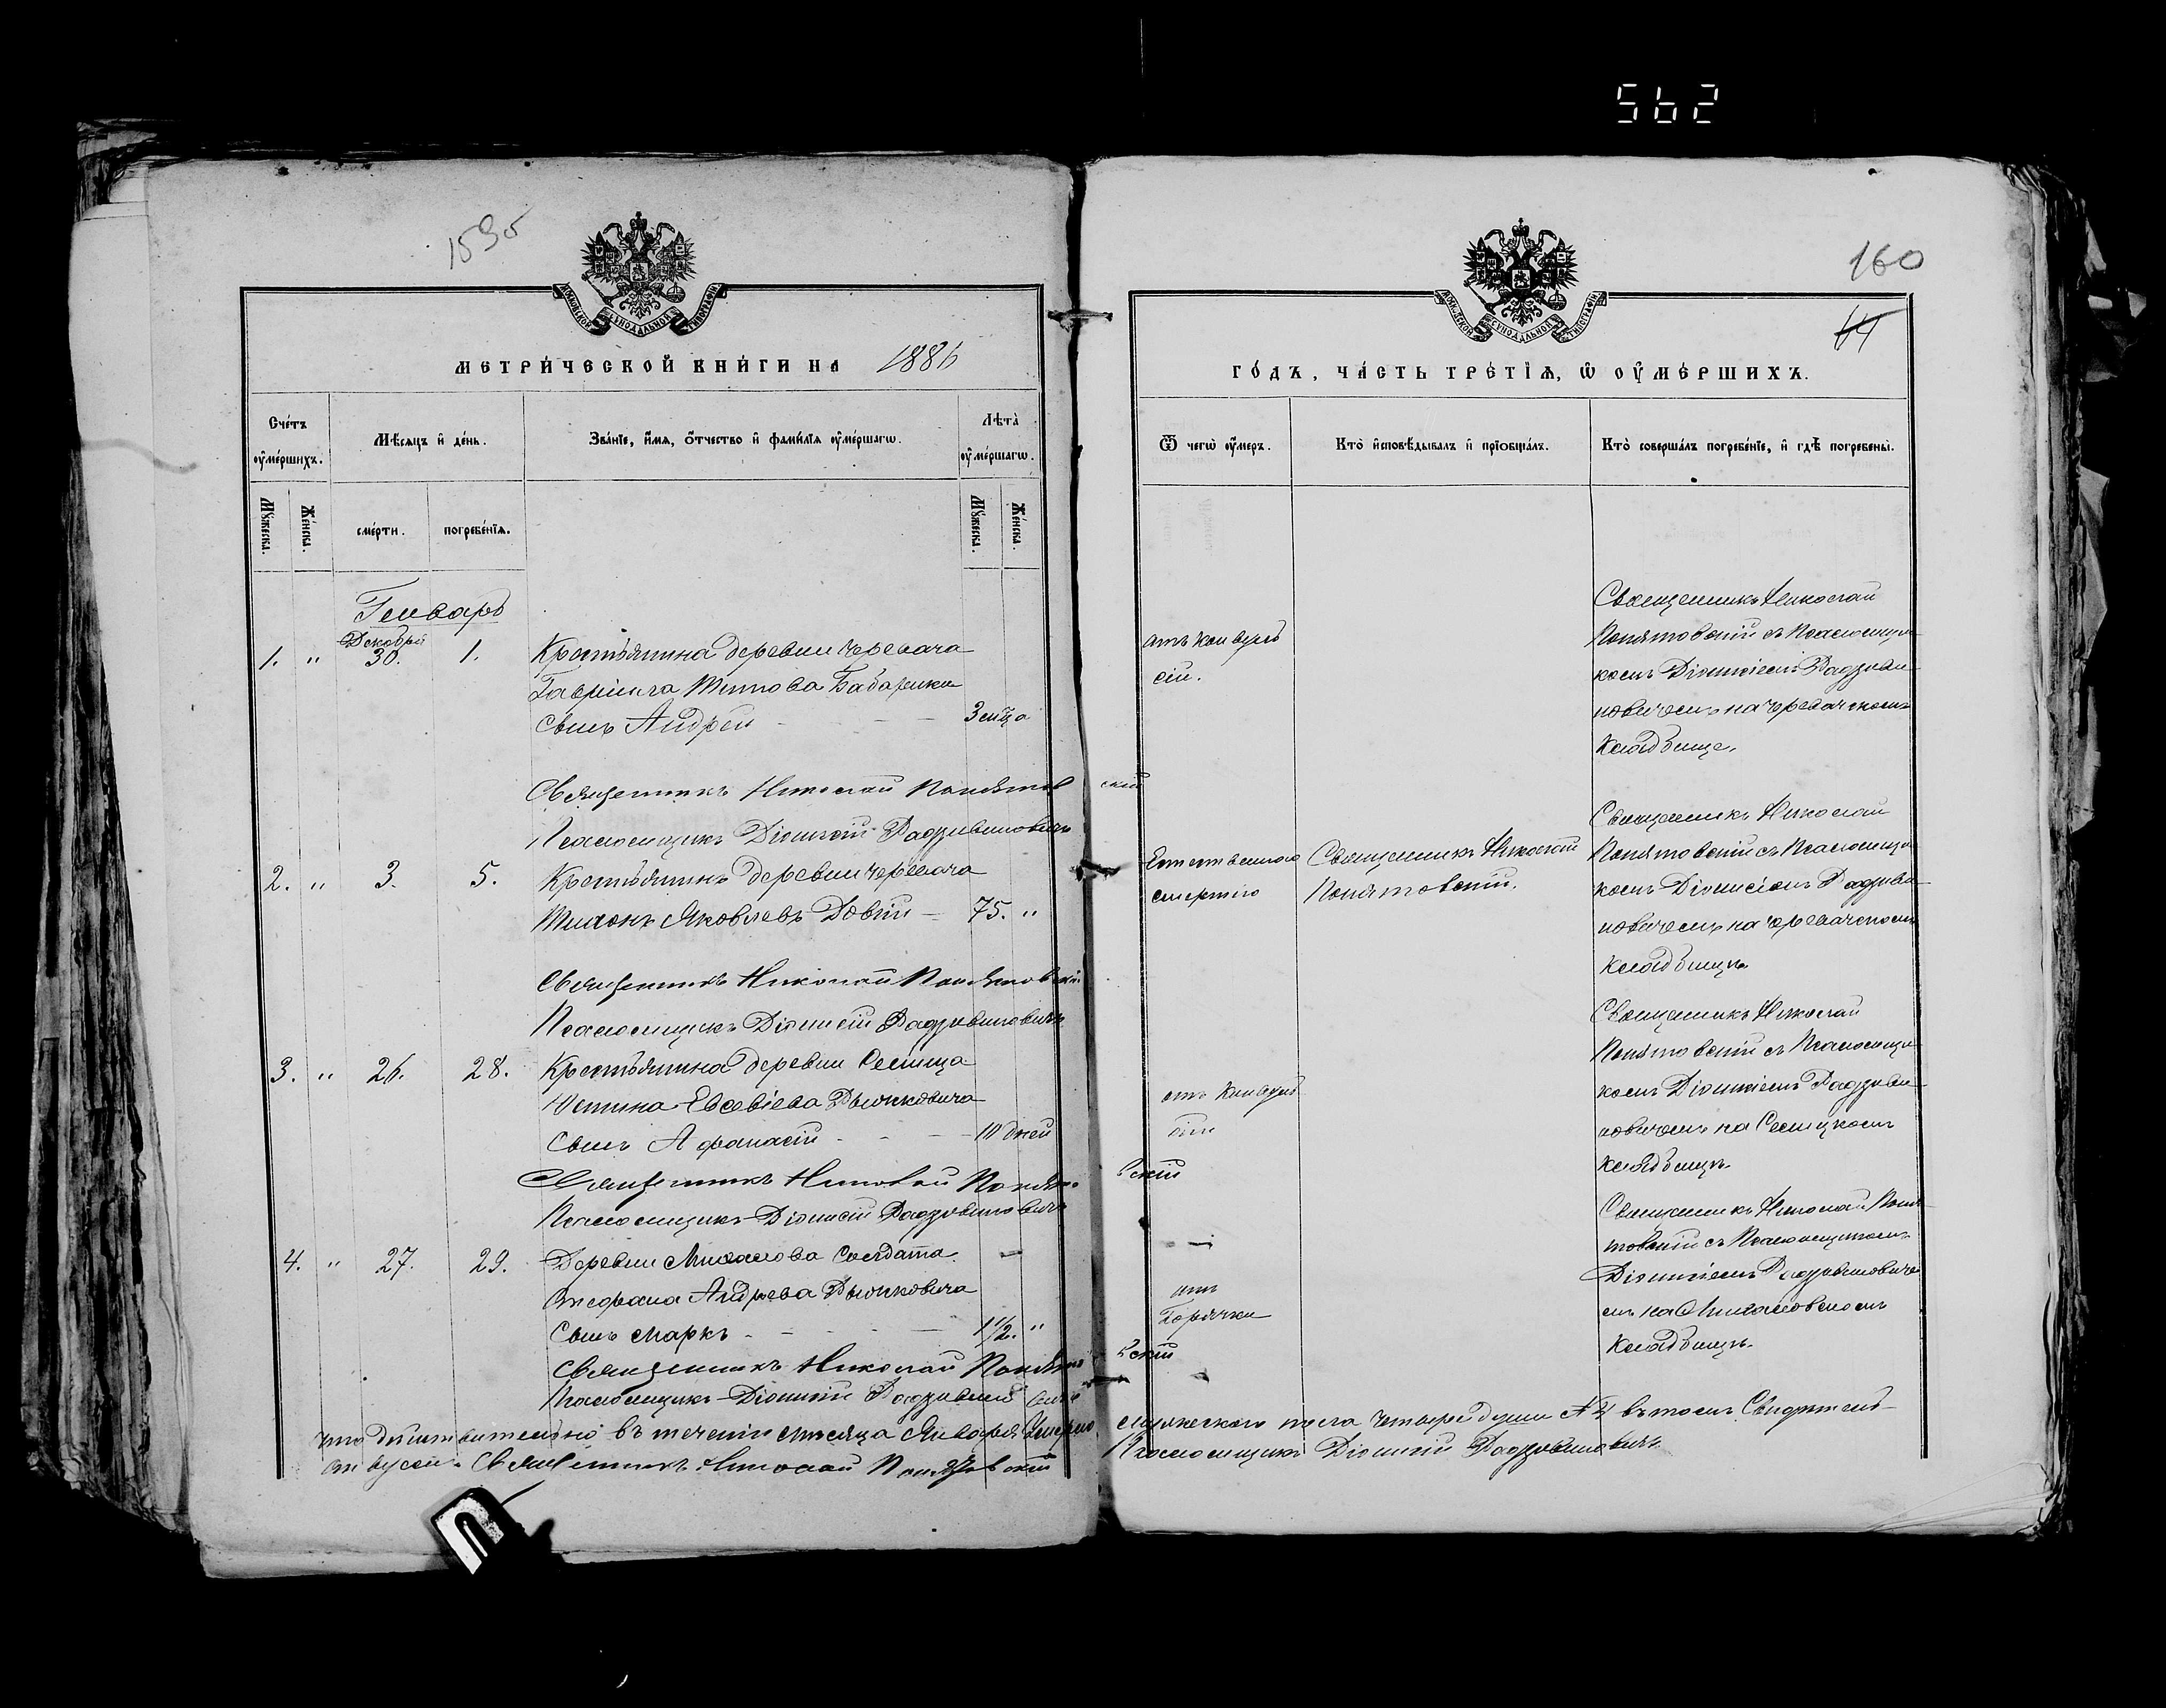 562
160
МОСКОВСКОЙ СѴНОДАЛЬНОЙ ТИПОГРАФІИ
МЕТРИ́ЧЕСКОЙ КНИ́ГИ НА 1886
Сче́тъ ᲂу҆ме́ршихъ.
Мѣ́сяцъ и҆ де́нь.
Зва́нїе, и҆́мѧ, ѻ҆́тчество и҆ фами́лїѧ ᲂу҆ме́ршагѡ.
Лѣта̀ ᲂу҆ме́ршагѡ.
Мꙋ́жеска.
Же́нска.
сме́рти.
погребе́нїѧ.
Мꙋ́жеска.
Же́нска.
Генварь
1. " Декабря 30. 1. Крестьянина деревни Черевача
Гавріила Титова Бабарики
сынъ Андрей - - - 3 м-ца
Священникъ Николай Понятовскій
Псаломщикъ Діонисій Радзивиновичъ
2. " 3. 5. Крестьянинъ деревни Черевача
Тихонъ Яковлевъ Довгій - 75. "
Священникъ Николай Понятовскій
Псаломщикъ Діонисій Радзивиновичъ
3. " 26. 28. Крестьянина деревни Селища
Устина Евсевіева
сынъ Афанасій - - - 10 дней
Священникъ Николай Понятовскій
Псаломщикъ Діонисій Радзивиновичъ
4. " 27. 29. Деревни Михалова Солдата
Стефана Андреева
сынъ Маркъ - - - 1 1/2. "
Священникъ Николай Понятовскій
Псаломщикъ Діонисій Радзивиновичъ
что дѣйствительно въ теченіи мѣсяца Января умерло
Священникъ Николай Понятовскій
МОСКОВСКОЙ СѴНОДАЛЬНОЙ ТИПОГРАФІИ
ГО́ДЪ, ЧА́СТЬ ТРЕ́ТЇѦ, Ѡ҆ ОУ҆МЕ́РШИХЪ.
Ѿ чегѡ̀ ᲂу҆́меръ.
Кто̀ и҆сповѣ́дывалъ и҆ прїѡбща́лъ.
Кто̀ соверша́лъ погребе́нїе, и҆ гдѣ̀ погребены̀.
отъ конвуль
сіи.
Священникъ Николай
Понятовскій съ Псаломщи-
комъ Діонисіемъ Радзиви-
новичемъ на Черевачскомъ
Кладбище.
Естественною
смертію
Священникъ Николай
Понятовскій.
Священникъ Николай
Понятовскій съ Псаломщи-
комъ Діонисіемъ Радзиви-
новичемъ на Черевачскомъ
Кладбищѣ
отъ Конвуль
сіи
Священникъ Николай
Понятовскій съ Псаломщи-
комъ Діонисіемъ Радзиви-
новичемъ на Селицкомъ
Кладбищѣ.
отъ
Горячки
Священникъ Николай Поня-
товскій съ Псаломщикомъ
Діонисіемъ Радзивиновиче
мъ на Михаловскомъ
Кладбищѣ.
мужескаго пола четыре души № 4 въ томъ Свидѣтель-
Псаломщикъ Діонисій Радзивиновичъ